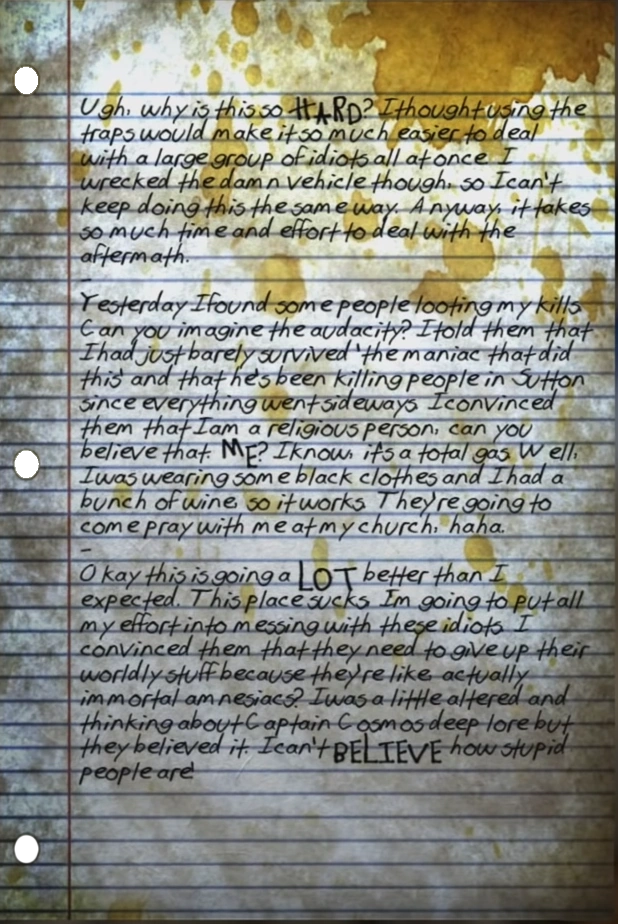 Ugh, why is this so HARD? I thought using the
traps would make it so much easier to deal
with a large group of idiots all at once. I
wrecked the damn vehicle though, so I can't
keep doing this the same way. Anyway, it takes
so much time and effort to deal with the
aftermath.
Yesterday I found some people looting my kills.
Can you imagine the audacity? I told them that
I had just barely survived 'the maniac that did
this' and that he's been killing people in Sutton
since everything went sideways. I convinced
them that I am a religious person, can you
believe that. ME? I know, it's a total gas. Well,
I was wearing some black clothes and I had a
bunch of wine, so it works. They're going to
come pray with me at my church, haha.
-
Okay this is going a LOT better than I
expected. This place sucks. I'm going to put all
my effort into messing with these idiots. I
convinced them that they need to give up their
worldly stuff because they're like, actually
immortal amnesiacs? I was a little altered and
thinking about Captain Cosmos deep lore but
they believed it. I can't BELIEVE how stupid
people are!